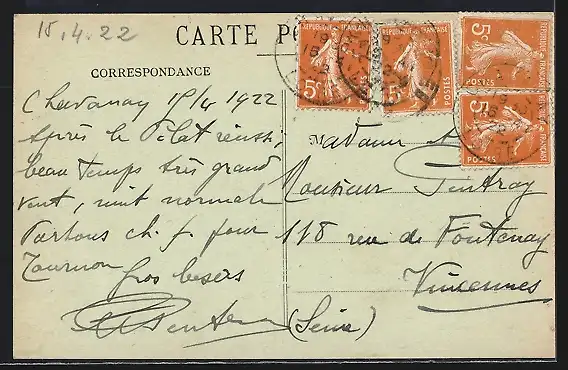 15.4.22
CARTE PO
CORRESPONDANCE
Chavanay 15/4 1922
Après le Pilat réussi,
beau temps très grand
vent, nuit normale
Partons ch. f. pour
Tournon
Gros besers
Madame &
Monsieur Pentray
118 rue de Fontenay
Vincennes
(Seine)
5c REPUBLIQUE FRANÇAISE POSTES
REPUBLIQUE FRANÇAISE POSTES
5c REPUBLIQUE FRANÇAISE POSTES
5c REPUBLIQUE FRANÇAISE POSTES